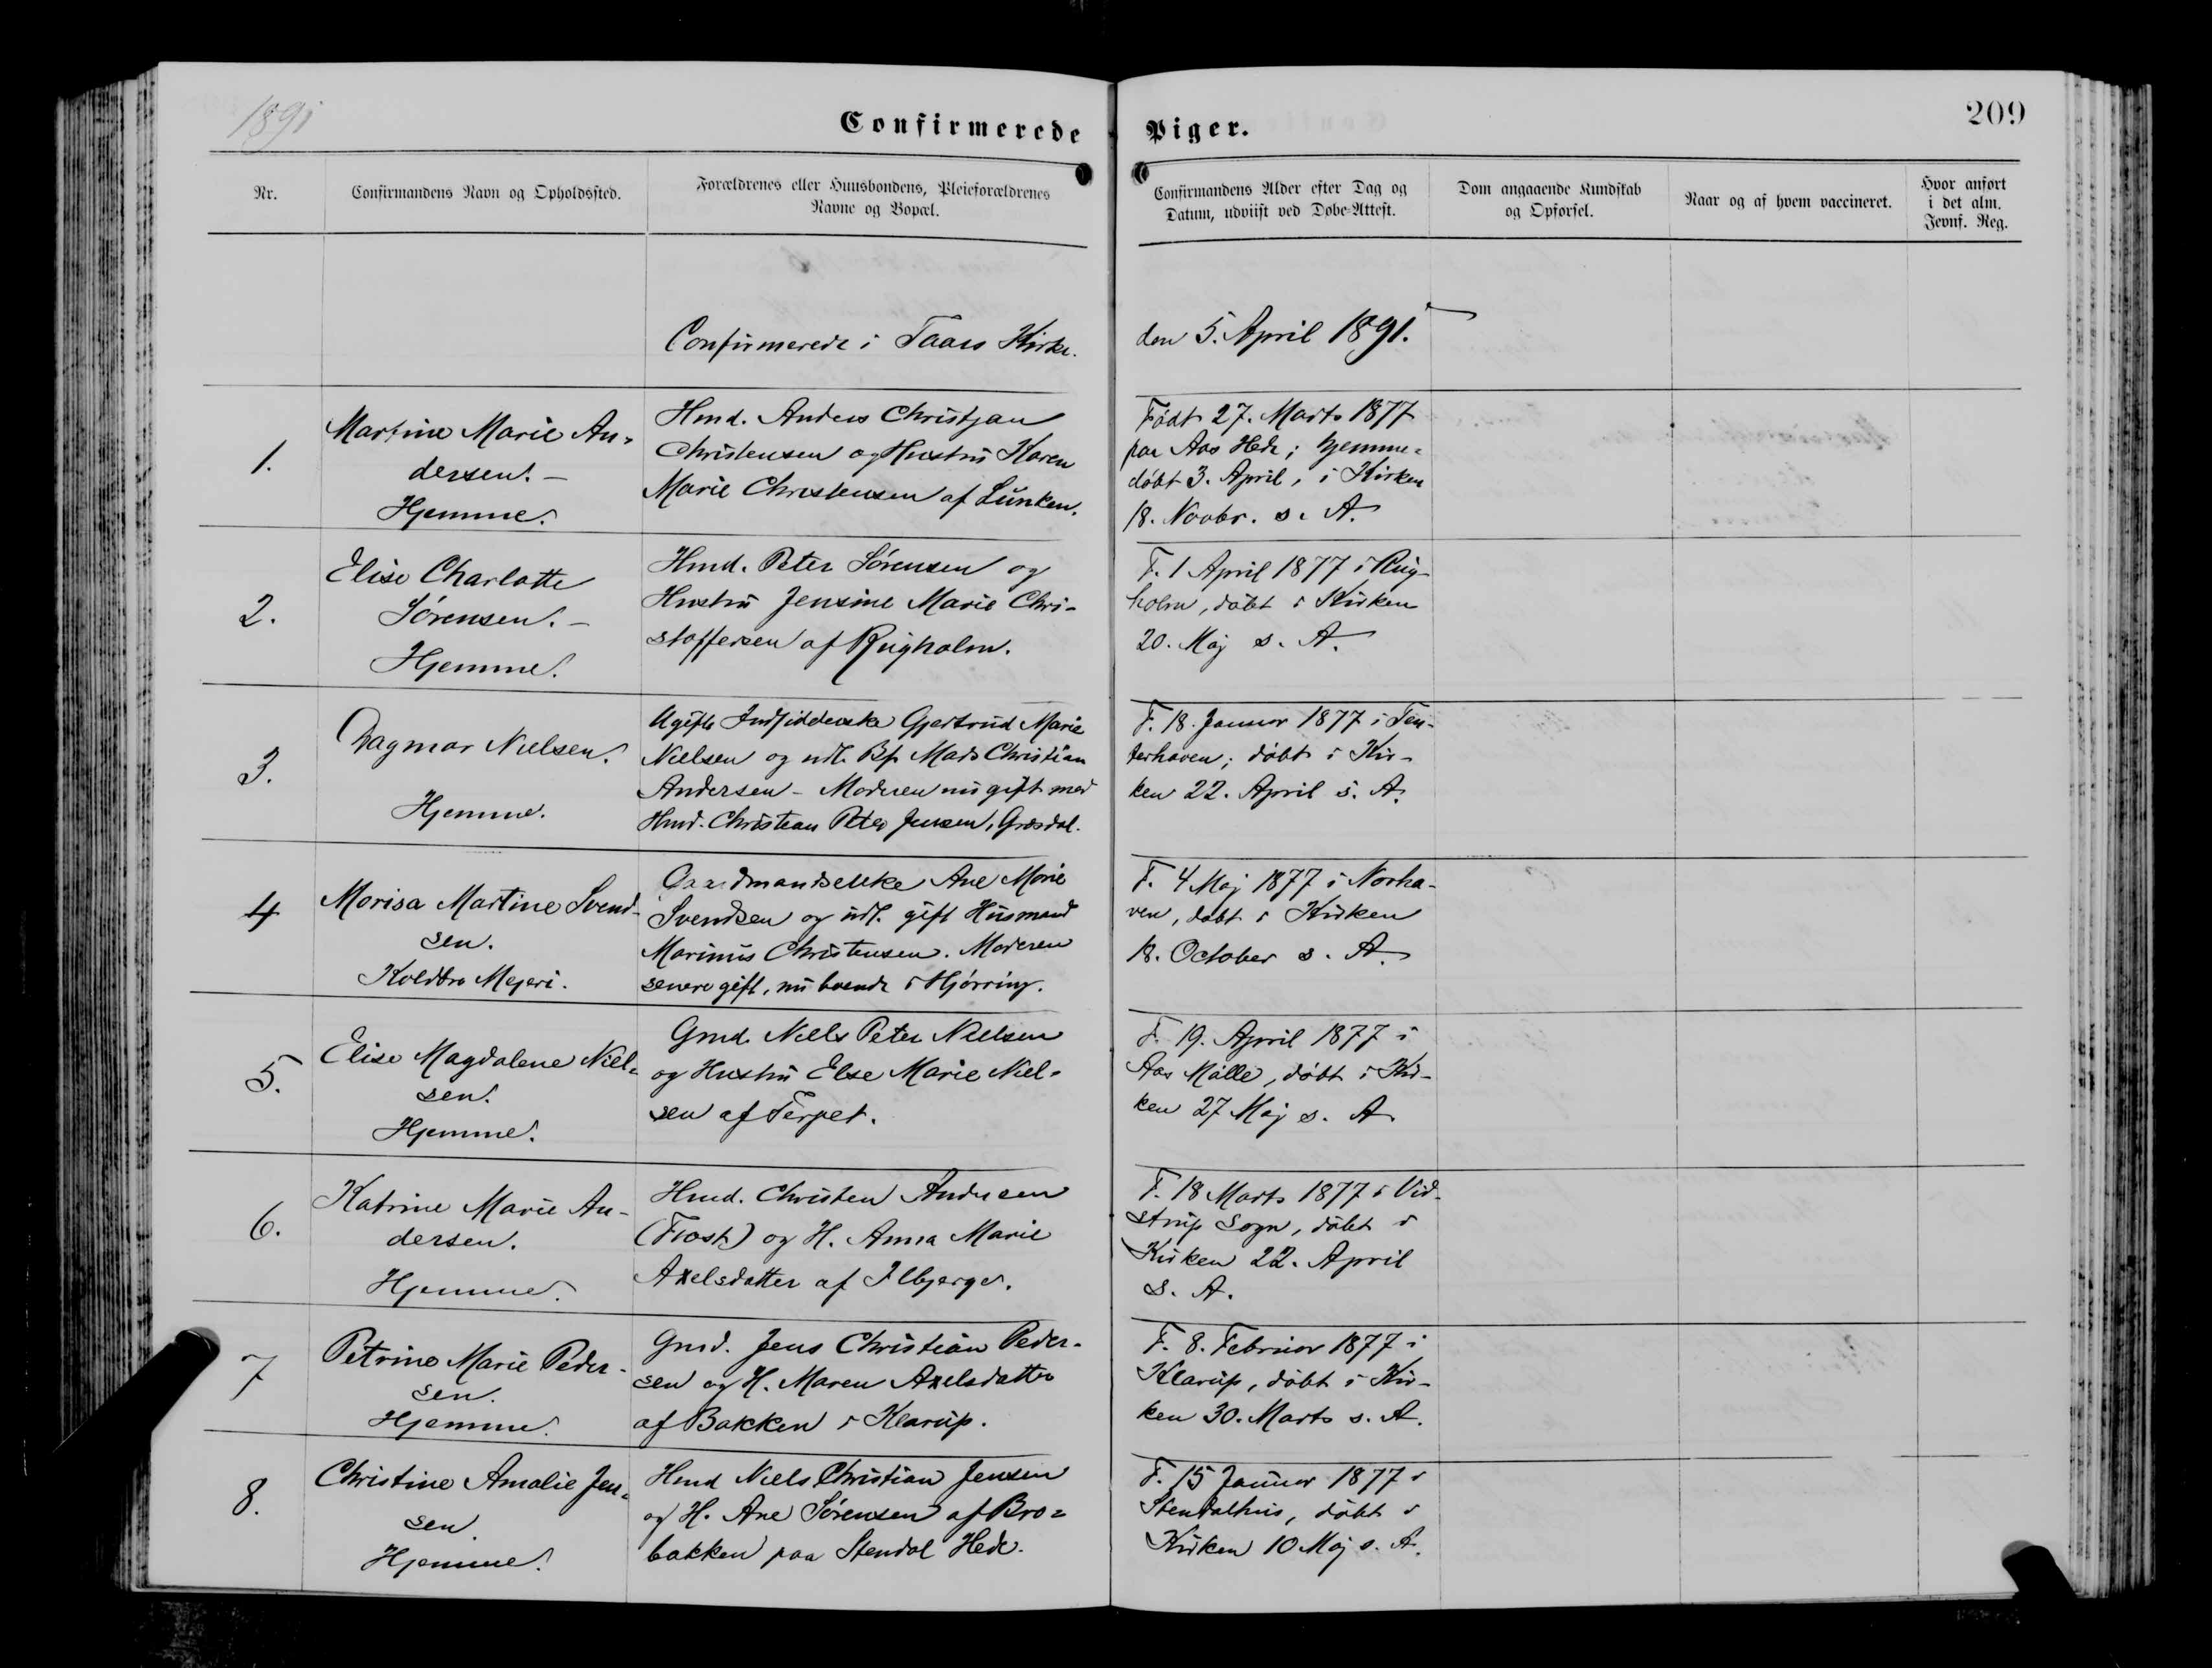 1891
Confirmerede Piger.
209
Nr.
Confirmandens Navn og Opholdssted.
Forældrenes eller Huusbondens, Pleieforældrenes
Navne og Bopæl.
Confirmandens Alder efter Dag og
Datum, udviist ved Døbe-Attest.
Dom angaaende Kundskab
og Opførsel.
Naar og af hvem vaccineret.
Hvor anført
i det alm.
Jevnf. Reg.
Confirmerede i Taars Kirke.
den 5. April 1891.
1.
Martine Marie An-
dersen. –
Hjemme.
Hmd. Anders Christjan
Christensen og Hustru Karen
Marie Christensen af Lunken.
Født 27. Marts 1877
paa Aas Hede; hjemme-
døbt 3. April, i Kirken
18. Novbr. s. A.
2.
Elise Charlotte
Sørensen. –
Hjemme.
Hmd. Peter Sørensen og
Hustru Jensine Marie Chri-
stoffersen af Rugholm.
F. 1 April 1877 i Rug-
holm, døbt i Kirken
20. Maj s. A.
3.
Dagmar Nielsen.
Hjemme.
Ugifte Indsidderske Gjertrud Marie
Nielsen og udl. Bf. Mads Christian
Andersen – Moderen nu gift med
Hmd. Christian Peter Jensen, Græsdal.
F. 18. Januar 1877 i Ten-
terhaven; døbt i Kir-
ken 22. April s. A.
4
Morisa Martine Svend-
sen.
Koldbro Mejeri.
Gaardmandsenke Ane Marie
Svendsen og udl. gift Husmand
Marinus Christensen. Moderen
senere gift, nu boende i Hjørring.
F. 4 Maj 1877 i Norha-
ven, døbt i Kirken
18. October s. A.
5.
Elise Magdalene Niel-
sen.
Hjemme.
Gmd. Niels Peter Nielsen
og Hustru Else Marie Niel-
sen af Terpet.
F. 19. April 1877 i
Aas Mølle, døbt i Kir-
ken 27 Maj s. A.
6.
Katrine Marie An-
dersen.
Hjemme.
Hmd. Christen Andersen
(Frost) og H. Anna Marie
Axelsdatter af Ilbjerge.
F. 18 Marts 1877 i Vid-
strup Sogn, døbt i
Kirken 22. April
s. A.
7
Petrine Marie Peder-
sen.
Hjemme.
Gmd. Jens Christian Peder-
sen og H. Maren Axelsdatter
af Bakken i Klarup.
F. 8. Februar 1877 i
Klarup, døbt i Kir-
ken 30. Marts s. A.
8.
Christine Amalie Jen-
sen.
Hjemme.
Hmd Niels Christian Jensen
og H. Ane Sørensen af Bro-
bakken paa Stendal Hede.
F. 15 Januar 1877 i
Stendalhus, døbt i
Kirken 10 Maj s. A.